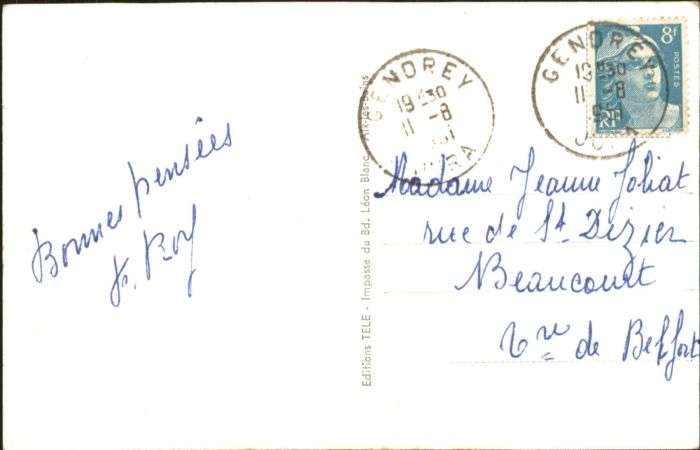 Bonnes pensées
Editions TELE - Impasse du Bd. Léon Blanc - Aix-les-Bains
GENDREY
19 H30
11 -8
JURA
GENDREY
11 -8
8f
POSTES
RF
Madame Jeanne Joliat
rue de St. Dizier
Beaucourt
Tre de Belfort